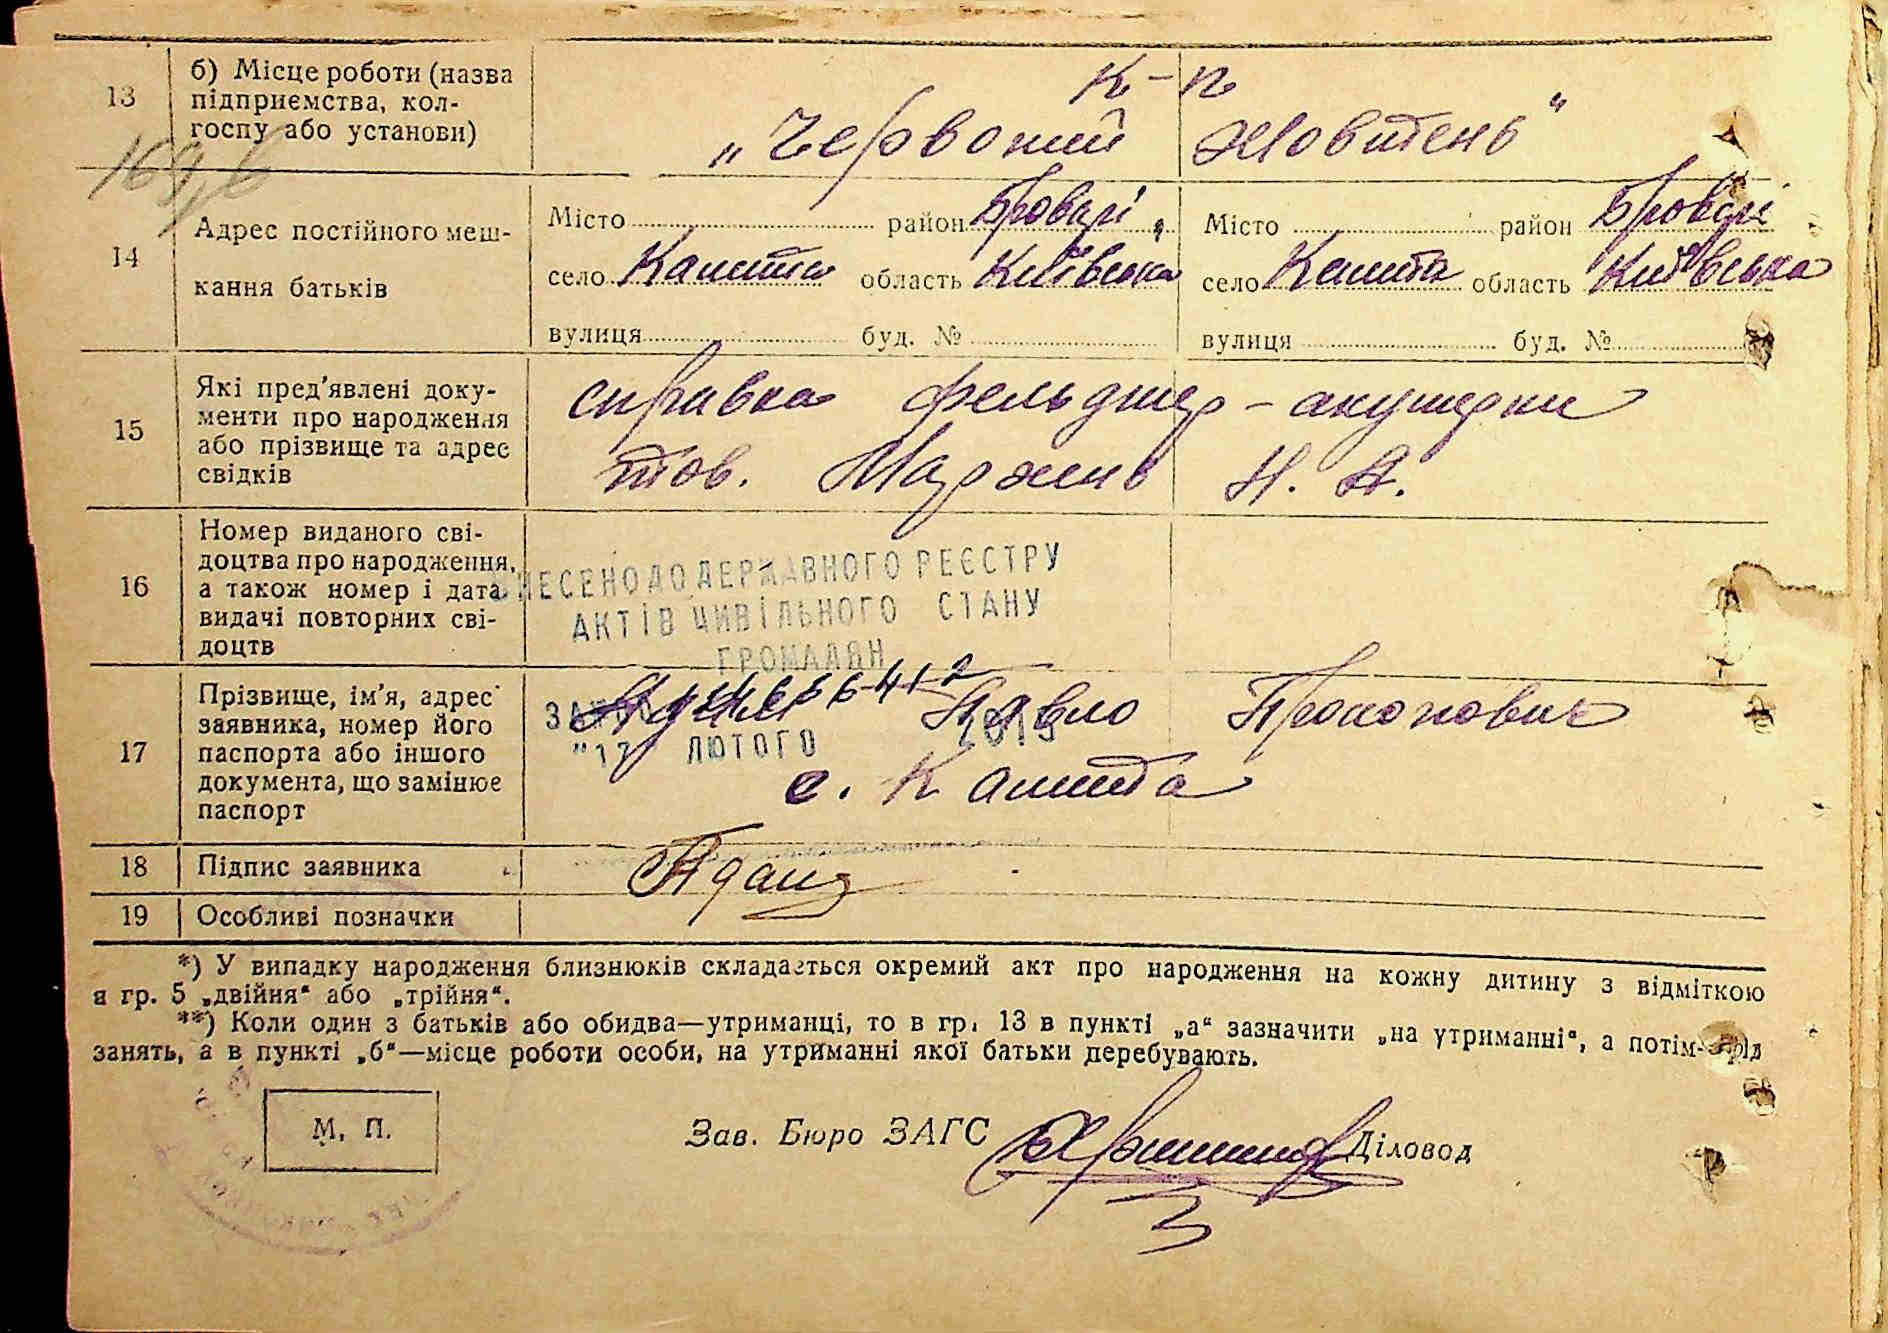 13
б) Місце роботи (назва
підприємства, кол-
госпу або установи)
к-п
„Червоний Жовтень“
14
Адрес постійного меш-
кання батьків
Місто район Броварі
село Калита область Київська
вулиця буд. №
Місто район Броварі
село Калита область Київська
вулиця буд. №
15
Які пред'явлені доку-
менти про народження
або прізвище та адрес
свідків
справка фельдшер-акушерки
тов. Н. А.
16
Номер виданого сві-
доцтва про народження,
а також номер і дата
видачі повторних сві-
доцтв
ВНЕСЕНО ДО ДЕРЖАВНОГО РЕЄСТРУ
АКТІВ ЦИВІЛЬНОГО СТАНУ
ГРОМАДЯН
17
Прізвище, ім'я, адрес
заявника, номер його
паспорта або іншого
документа, що замінює
паспорт
Павло Прокопович
ЛЮТОГО
с. Калита
18
Підпис заявника
19
Особливі позначки
*) У випадку народження близнюків складається окремий акт про народження на кожну дитину з відміткою
в гр. 5 „двійня“ або „трійня“.
**) Коли один з батьків або обидва—утриманці, то в гр. 13 в пункті „а“ зазначити „на утриманні“, а потім—рід
занять, а в пункті „б“—місце роботи особи, на утриманні якої батьки перебувають.
М. П.
Зав. Бюро ЗАГС
Діловод